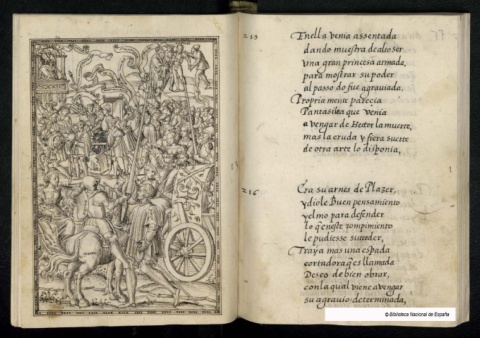 215
En ella venia assentada
dando muestra de alto ser
vna gran princesa armada,
para mostrar su poder
al passo do fue agraviada.
Propria mente parecia
Pantasilea que venia
a vengar de Hector la muerte,
mas la cruda y fiera suerte
de otra arte lo disponia,
216
Era su arnes de Plazer,
y diole Buen pensamiento
y elmo para defender
lo q̃ en este rompimiento
le pudiesse suceder,
Traya mas una espada
cortadora q̃ es llamada
Deseo de bien obrar,
con la qual viene a vengar
su agravio determinada,
© Biblioteca Nacional de España